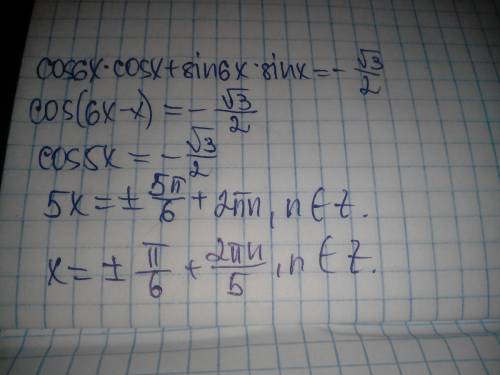 cos6x·cosx+sin6x·sinx=-√3/2
cos(6x-x)=-√3/2
cos5x=-√3/2
5x=±5π/6+2πn, n∈Z.
x=±π/6+2πn/5, n∈Z.